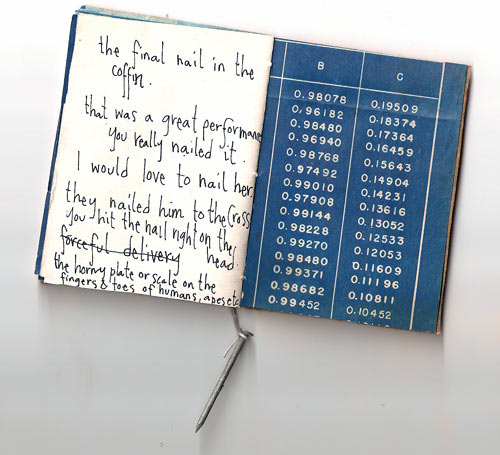 the final nail in the
coffin.
that was a great performance
you really nailed it.
I would love to nail her.
they nailed him to the Cross
you hit the nail right on the
head.
forceful delivery
the horny plate or scale on the
fingers & toes of humans, apes etc
B C
0.98078 0.19509
0.96182 0.18374
0.98480 0.17364
0.96940 0.16459
0.98768 0.15643
0.97492 0.14904
0.99010 0.14231
0.97908 0.13616
0.99144 0.13052
0.98228 0.12533
0.99270 0.12053
0.98480 0.11609
0.99371 0.11196
0.98682 0.10811
0.99452 0.10452